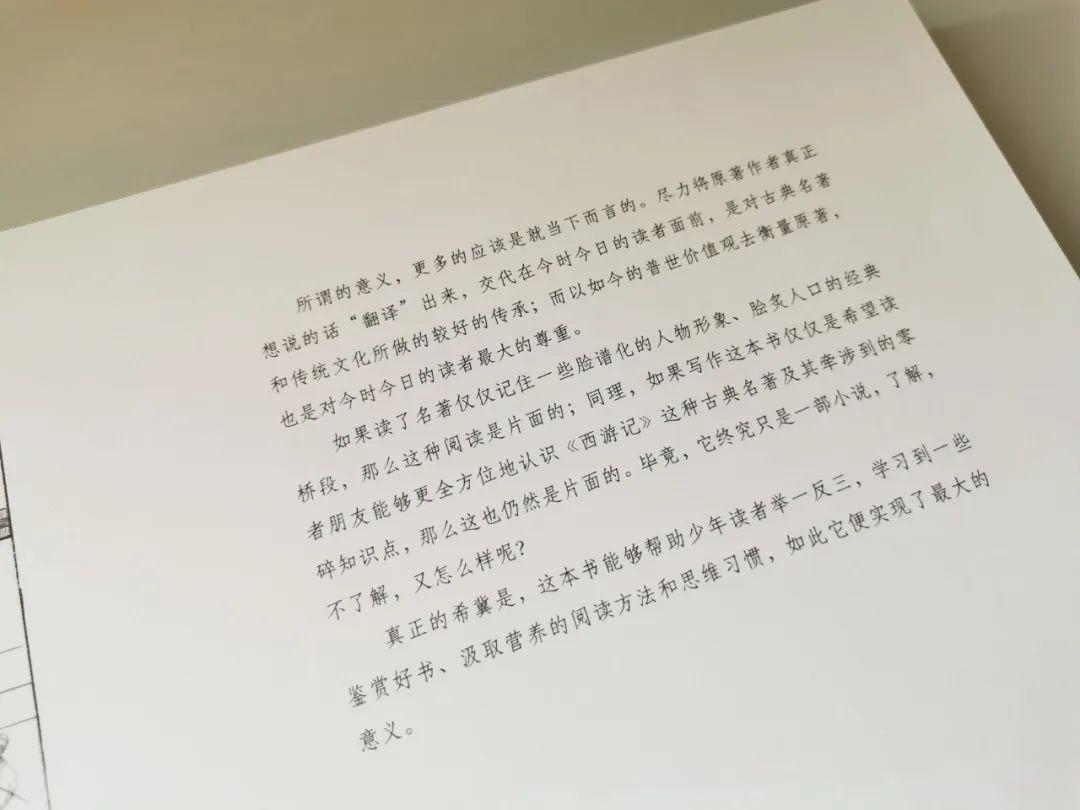 所谓的意义，更多的应该是就当下而言的。尽力将原著作者真正
想说的话“翻译”出来，交代在今时今日的读者面前，是对古典名著
和传统文化所做的较好的传承；而以如今的普世价值观去衡量原著，
也是对今时今日的读者最大的尊重。
如果读了名著仅仅记住一些脸谱化的人物形象、脍炙人口的经典
桥段，那么这种阅读是片面的；同理，如果写作这本书仅仅是希望读
者朋友能够更全方位地认识《西游记》这种古典名著及其牵涉到的零
碎知识点，那么这也仍然是片面的。毕竟，它终究只是一部小说，了解，
不了解，又怎么样呢？
真正的希冀是，这本书能够帮助少年读者举一反三，学习到一些
鉴赏好书、汲取营养的阅读方法和思维习惯，如此它便实现了最大的
意义。